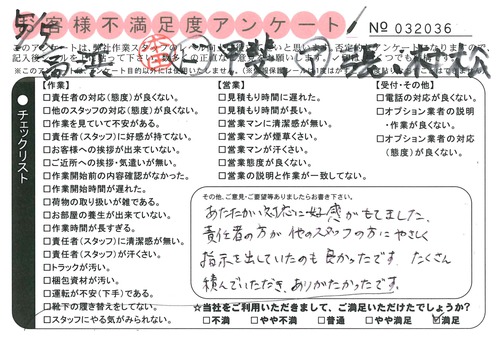 お客様不満足度アンケート
No 032036
チェックリスト
【作業】
□責任者の対応(態度)が良くない。
□他のスタッフの対応(態度)が良くない。
□作業を見ていて不安がある。
□責任者(スタッフ)に好感が持てない。
□お客様への挨拶が出来ていない。
□ご近所への挨拶・気遣いが無い。
□作業開始前の内容確認がなかった。
□作業開始時間が遅れた。
□荷物の取り扱いが雑である。
□お部屋の養生が出来ていない。
□作業時間が長すぎる。
□責任者(スタッフ)に清潔感が無い。
□責任者(スタッフ)が汗くさい。
□トラックが汚い。
□梱包資材が汚い。
□運転が不安(下手)である。
□靴下の履き替えをしてない。
□スタッフにやる気がみられない。
【営業】
□見積もり時間に遅れた。
□見積もり時間が長い。
□営業マンに清潔感が無い。
□営業マンが煙草くさい。
□営業マンが汗くさい。
□営業態度が良くない。
□営業の説明と作業が一致してない。
【受付・その他】
□電話の対応が良くない。
□オプション業者の説明
・作業が良くない。
□オプション業者の対応
(態度)が良くない。
その他、ご意見・ご要望等ありましたらお書き下さい。
あたたかい対応に好感がもてました。
責任者の方が他のスタッフの方にやさしく
指示を出していたのも良かったです。たくさん
積んでいただき、ありがたかったです。
☆当社をご利用いただきまして、ご満足いただけたでしょうか?
□不満 □やや不満 □普通 □やや満足 □満足